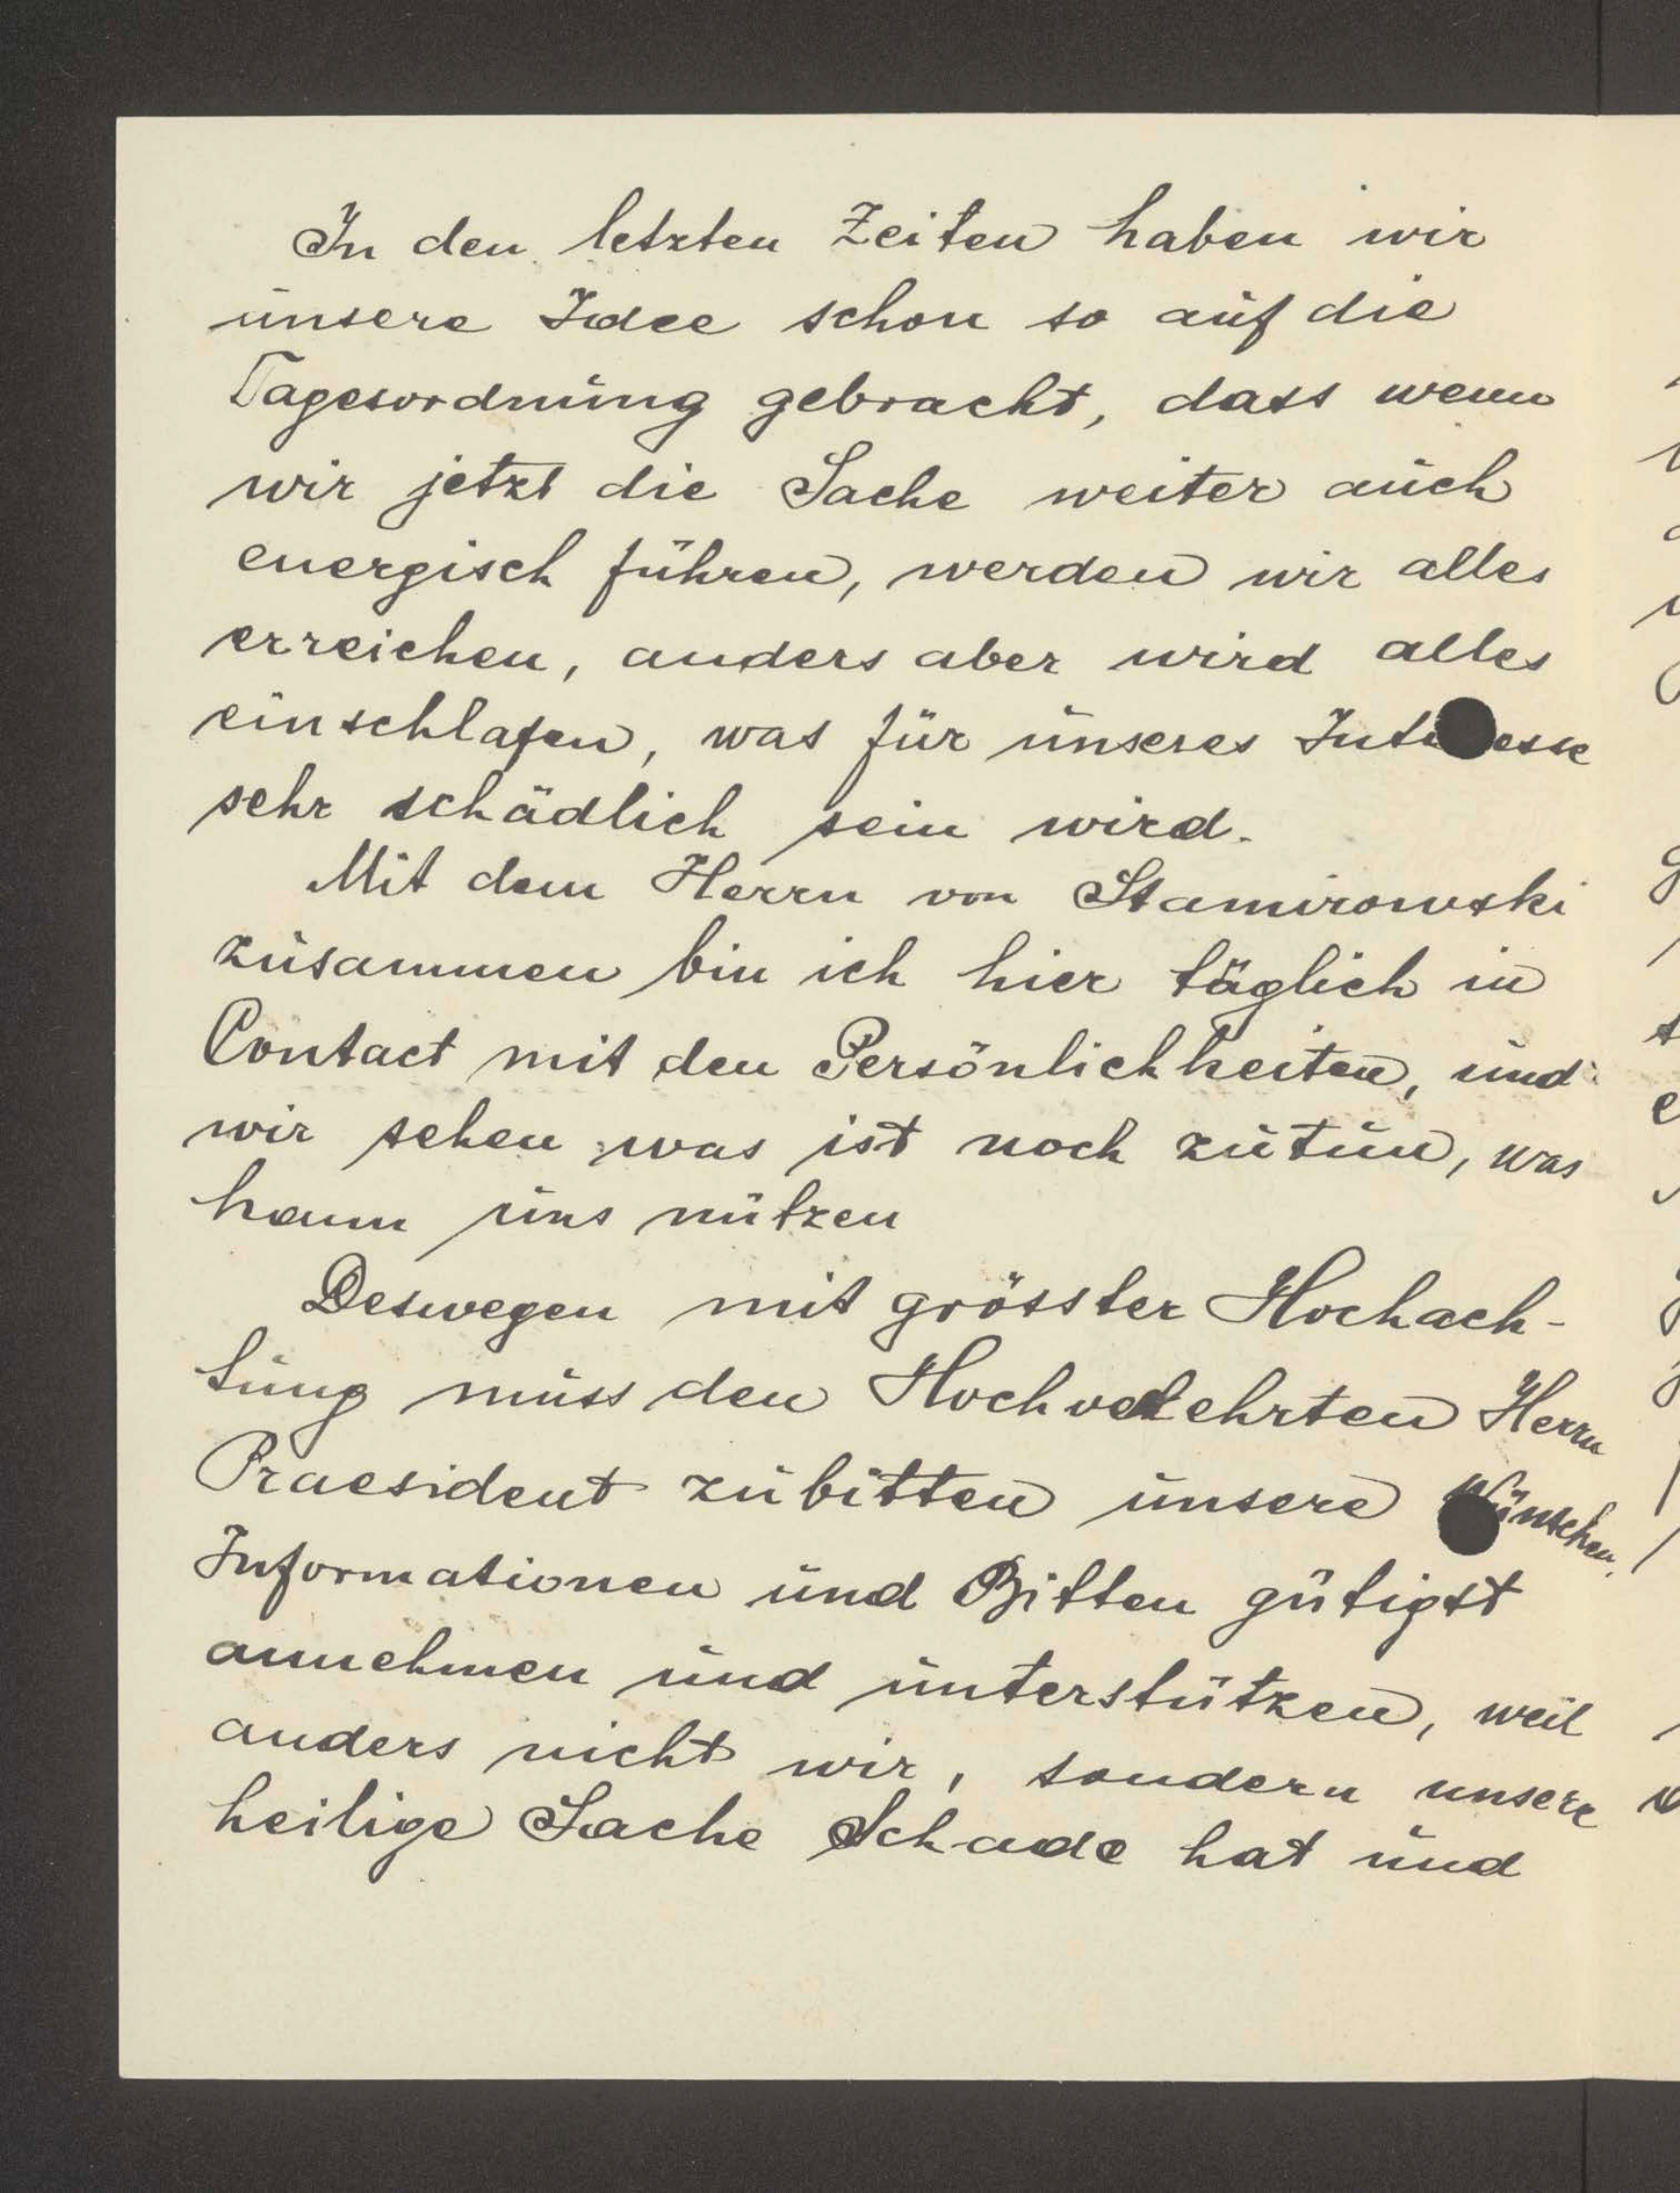 In den letzten Zeiten haben wir
unsere Idee schon so auf die
Tagesordnung gebracht, dass wenn
wir jetzt die Sache weiter auch
energisch führen, werden wir alles
erreichen, anders aber wird alles
einschlafen, was für unseres Interesse
sehr schädlich sein wird.
Mit dem Herrn von Stamirowski
zusammen bin ich hier täglich in
Contact mit den Persönlichkeiten, und
wir sehen was ist noch zutun, was
kann uns nützen
Deswegen mit grösster Hochach-
tung muss den Hochverehrten Herrn
Praesident zubitten unsere Wünschen,
Informationen und Bitten gütigst
annehmen und unterstützen, weil
anders nicht wir, sondern unsere
heilige Sache Schade hat und